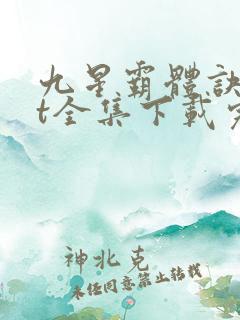 九星霸體訣
t全集下載完
神北克
未任同意禁止转载